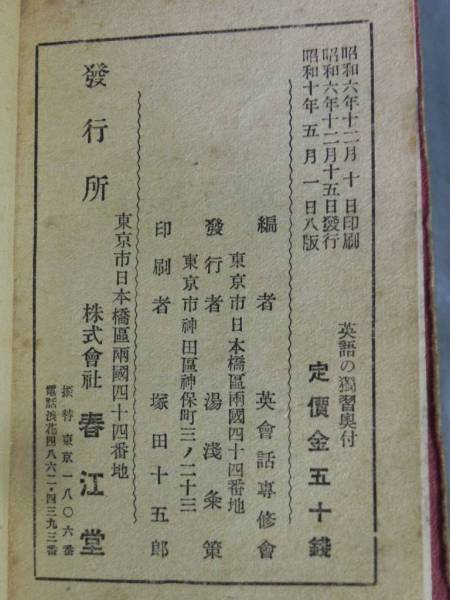 昭和六年十二月十日印刷
昭和六年十二月十五日發行
昭和十年五月一日八版
英語の獨習奧付
定價金五十錢
編者 英會話專修會
東京市日本橋區兩國四十四番地
發行者 湯淺粂策
東京市神田區神保町三ノ二十三
印刷者 塚田十五郎
東京市日本橋區兩國四十四番地
發行所 株式會社 春江堂
振替東京一八〇六番
電話浪花四八六二・四三九三番